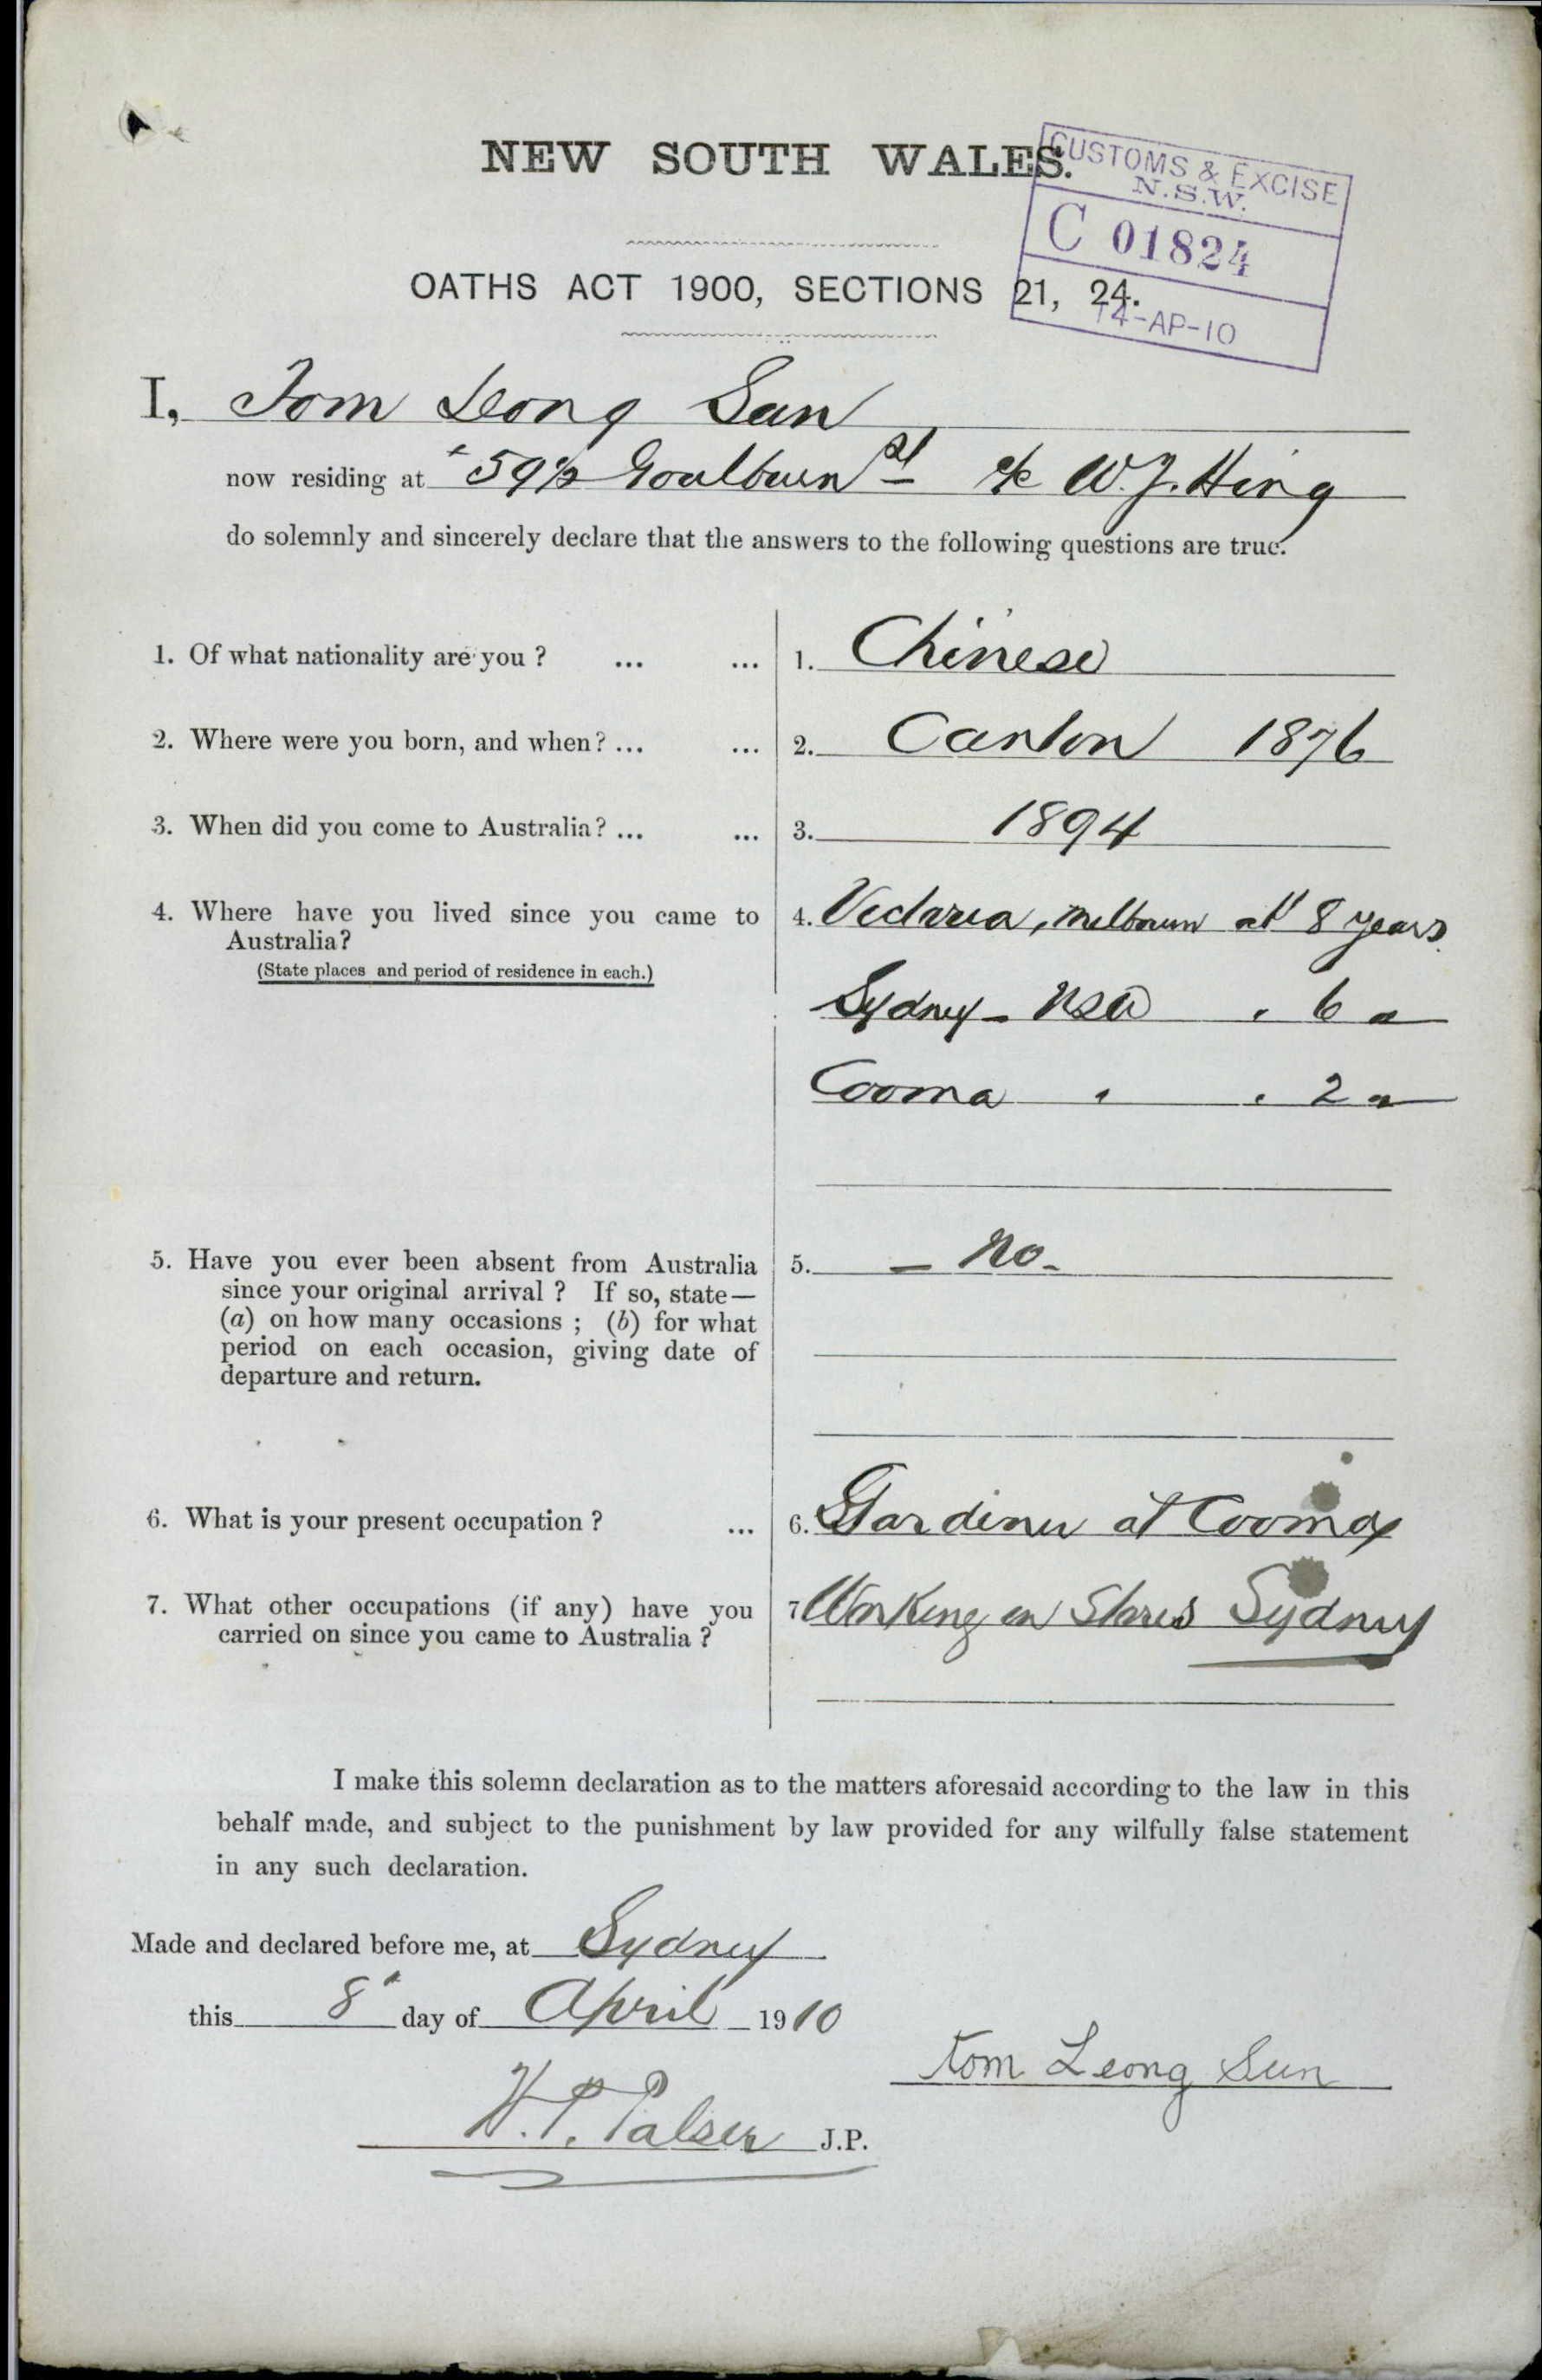 NEW SOUTH WALES.
CUSTOMS & EXCISE
N.S.W.
C 01824
14-AP-10
OATHS ACT 1900, SECTIONS 21, 24.
I, Tom Leong Sun
now residing at 59½ Goulburn St c/o W.J. Hing
do solemnly and sincerely declare that the answers to the following questions are true.
1. Of what nationality are you ? ... ... 1. Chinese
2. Where were you born, and when? ... ... 2. Canton 1876
3. When did you come to Australia? ... ... 3. 1894
4. Where have you lived since you came to 4. Victoria, Melbourn abt 8 years
Australia?
(State places and period of residence in each.)
Sydney - NSW " 6 "
Cooma " " 2 "
5. Have you ever been absent from Australia 5. - No -
since your original arrival ? If so, state—
(a) on how many occasions ; (b) for what
period on each occasion, giving date of
departure and return.
6. What is your present occupation ? ... 6. Gardiner at Cooma
7. What other occupations (if any) have you 7 Working in Stores Sydney
carried on since you came to Australia ?
I make this solemn declaration as to the matters aforesaid according to the law in this
behalf made, and subject to the punishment by law provided for any wilfully false statement
in any such declaration.
Made and declared before me, at Sydney
this 8" day of April 1910
tom Leong Sun
H.P. Palser J.P.